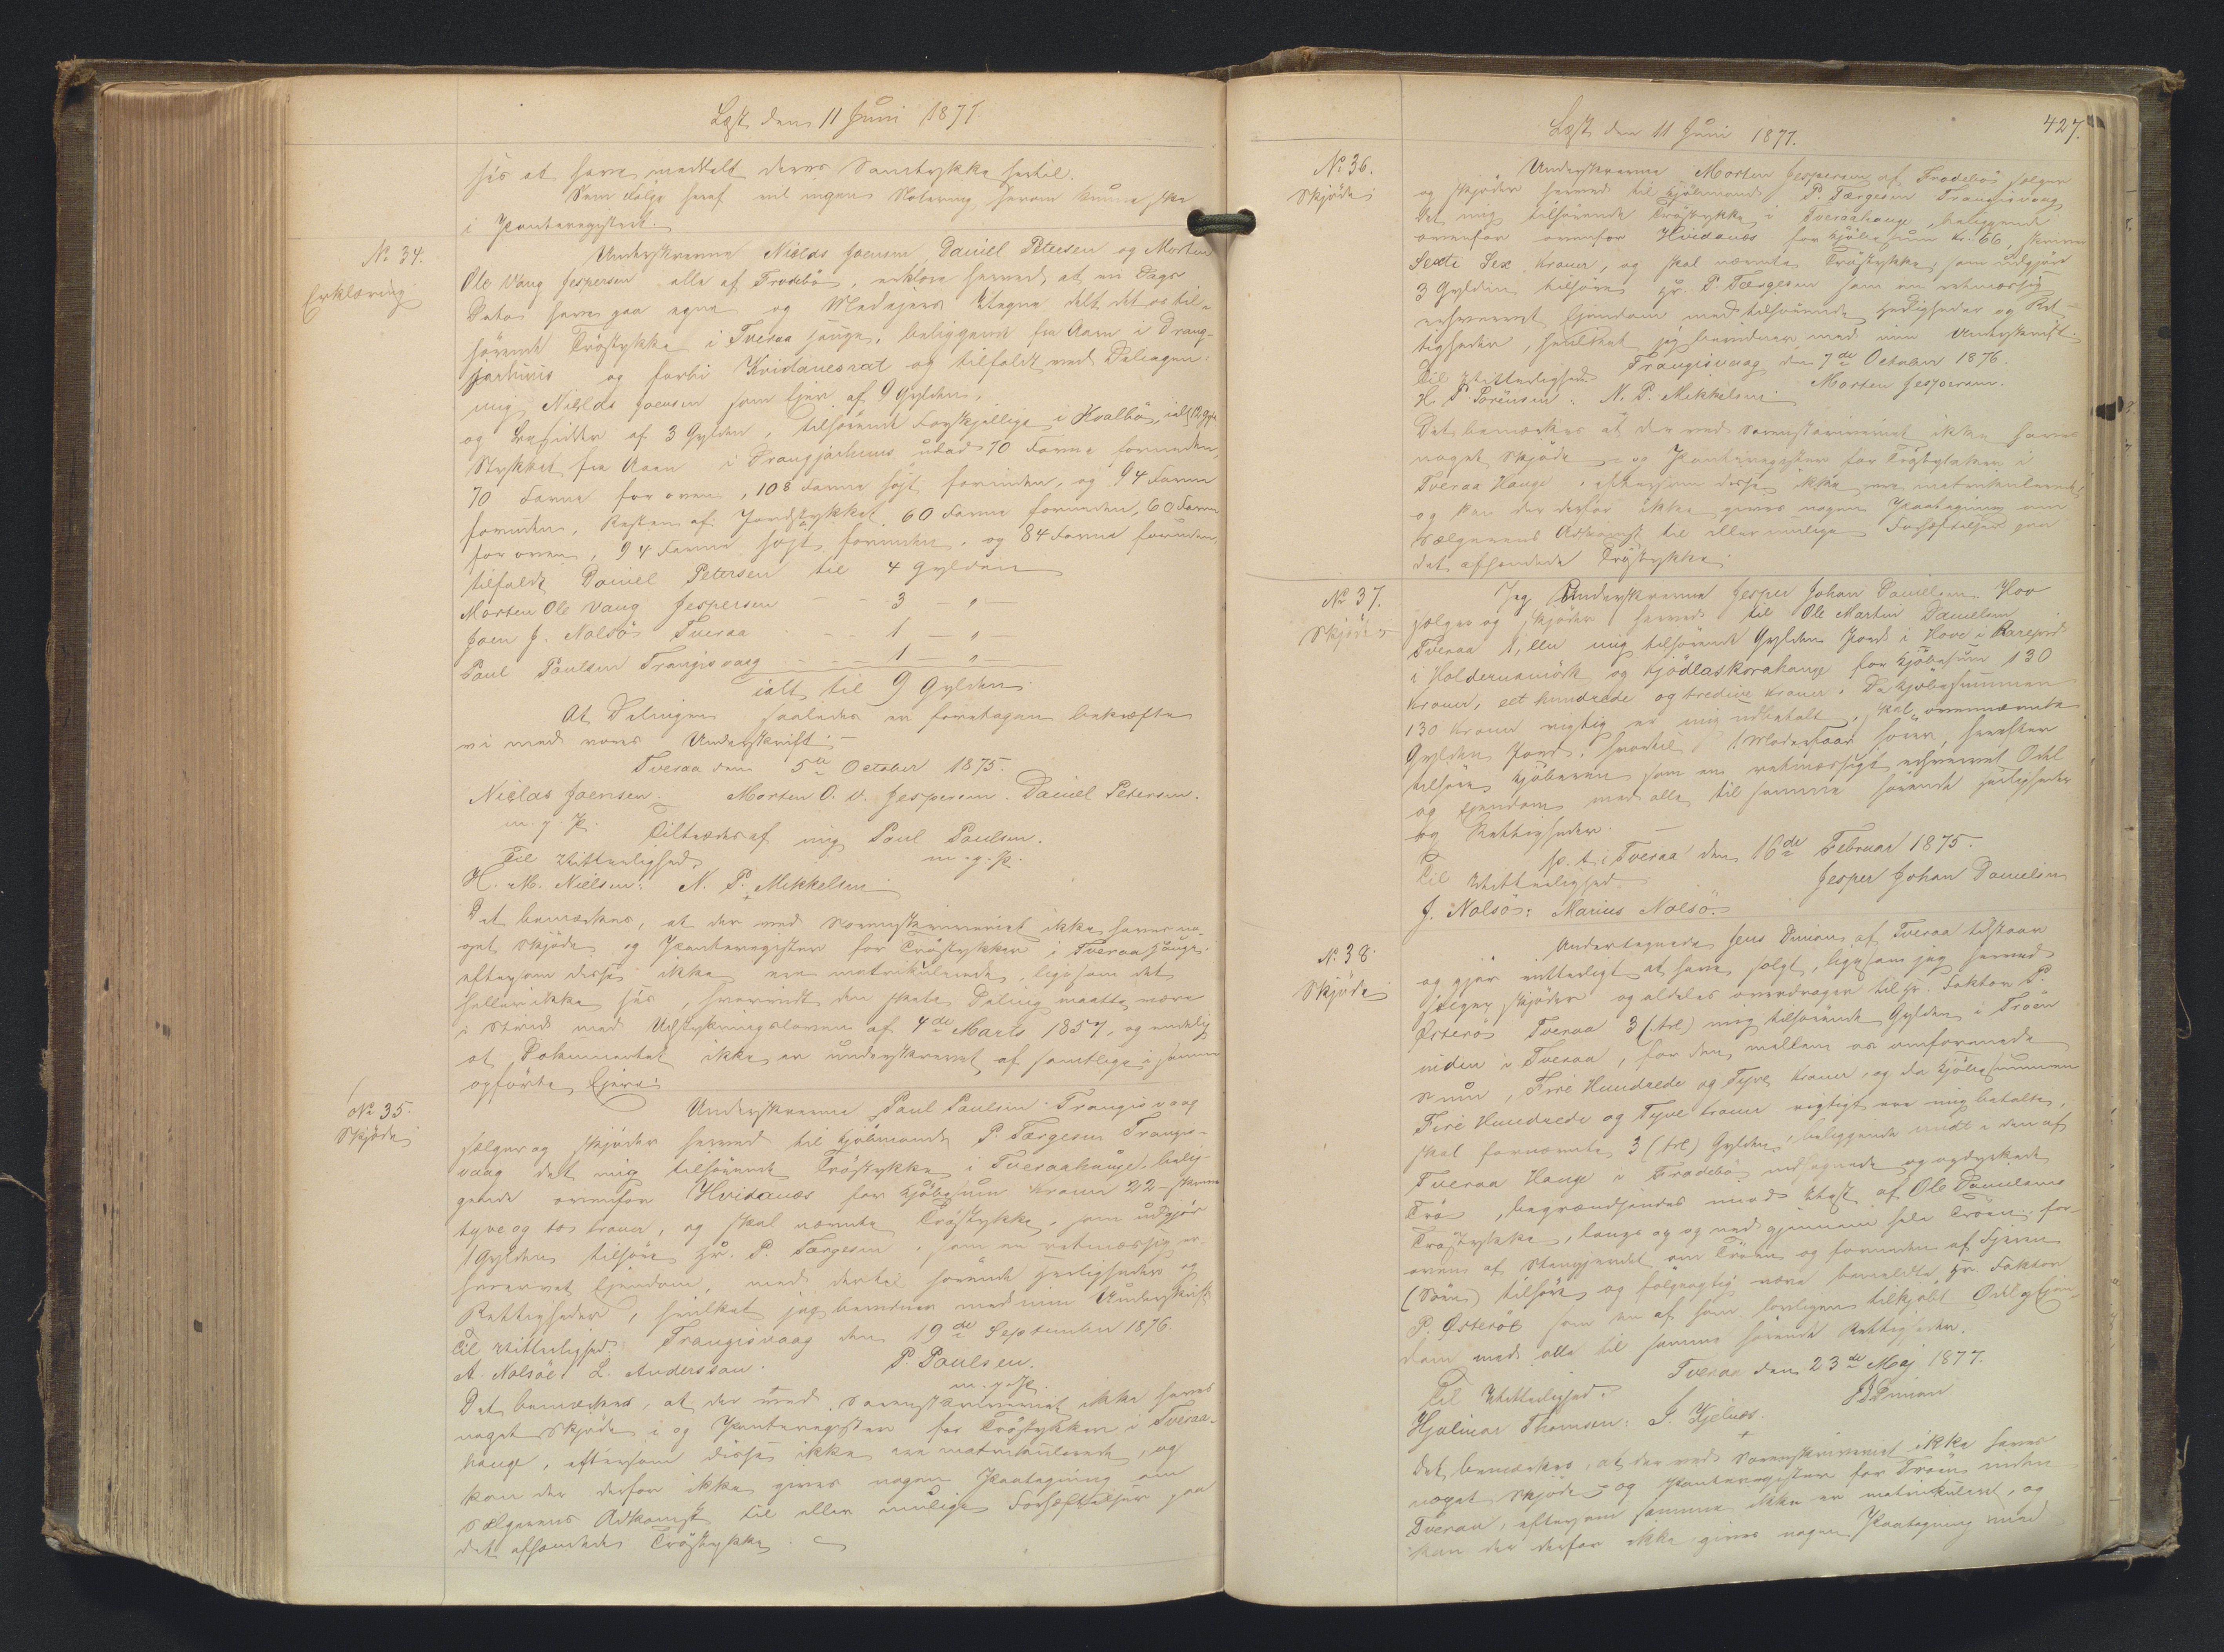 Læst den 11 Juni 1877.
sés at have meddelt deres Samtykke hertil.
Som Følge heraf vil ingen Notering herom kunne ske
i Panteregistret.
No 34.
Erklæring
Underskrevne Niclas Joensen, Daniel Petersen og Morten
Ole Vang Jespersen alle af Froðebö, erklære herved, at vi Dags
Dato have paa egne og Medejeres Vegne delt det os til-
hörende Tröstykke i Tveraa hauge, beliggende fra Aaen i Drang-
jarhuus og forbi Kvidanesrat og tilfaldt ved Delingen
mig Niclas Joensen som Ejer af 9 Gylden,
og Besidder af 3 Gylden, tilhörende Forskjellige i Hvalbö, ialt 12 Gyld
Stykket fra Aaen i Drangjarhuus udad 70 Favne forneden,
70 Favne for oven, 108 Favne höjt forinden, og 94 Favne
foruden. Resten af Jordstykket 60 Favne forneden, 60 Favne
for oven, 94 Favne höjt forinden, og 84 Favne foruden,
tilfaldt Daniel Petersen til 4 Gylden
Morten Ole Vang Jespersen - - 3 - " -
Joen J. Nolsö Tveraa - - 1 - " -
Paul Paulsen Trangisvaag - - - 1 - " -
ialt til 9 Gylden.
At Delingen saaledes er foretagen bekræfte
vi med vores Underskrift. -
Tveraa den 5te October 1875.
Niclas Joensen. Morten O. V. Jespersen. Daniel Petersen.
m. g. P.
Tiltrædes af mig Paul Paulsen.
m. g. P.
Til Vitterlighed
H. M. Nielsen: N. P. Mikkelsen
Det bemærkes, at der ved Sorenskriveriet ikke haves no-
get Skjöde- og Panteregister for Tröstykker i Tveraa hauge,
eftersom disse ikke ere matrikulerede, ligesom det
heller ikke sés, hvorvidt den skete Deling maatte være
i Strid med Udstykningsloven af 4de Marts 1857, og endelig
at Dokumentet ikke er underskrevet af samtlige i samme
opförte Ejere.
No 35.
Skjöde
Underskrevne Paul Paulsen Trangisvaag
sælger og skjöder herved til Kjöbmand P. Tærgesen Trangis-
vaag det mig tilhörende Tröstykke i Tveraahauge, belig-
gende ovenfor Hvidanæs for Kjöbesum Kroner 22 - skriver
tyve og to Kroner, og skal nævnte Tröstykke, som udgjör
1 Gylden tilhöre Hr. P. Tærgesen, som en retmæssig er-
hvervet Ejendom, med dertil hörende Herligheder og
Rettigheder, hvilket jeg bevidner med min Underskrift
Til Vitterlighed. Trangisvaag den 19de September 1876.
A. Nolsöe: L. Andersson. P. Poulsen.
m. g. P.
Det bemærkes, at der ved Sorenskriveriet ikke haves
noget Skjöde- og Panteregister for Tröstykker i Tveraa-
hauge, eftersom disse ikke ere matrikulerede, og
kan der derfor ikke gives nogen Paategning om
Sælgerens Adkomst til eller mulige Forhæftelser paa
det afhændede Tröstykke.
427.
Læst den 11 Juni 1877.
No 36.
Skjöde
Underskrevne Morten Jespersen af Froðebö sælger
og skjöder herved til Kjöbmand P. Tærgesen Trangisvaag
det mig tilhörende Tröstykke i Tveraahauge, beliggende
ovenfor ovenfor Hvidanæs for Kjöbesum Kr. 66, skriver
Sexti Sex Kroner, og skal nævnte Tröstykke, som udgjör
3 Gylden tilhöre Hr. P. Tærgesen som en retmæssig
erhvervet Ejendom med tilhörende Herligheder og Ret-
tigheder, hvilket jeg bevidner med min Underskrift.
Til Vitterlighed Trangisvaag den 7de October 1876.
H. P. Sörensen: N. P. Mikkelsen Morten Jespersen.
Det bemærkes at der ved Sorenskriveriet ikke haves
noget Skjöde- og Panteregister for Tröstykker i
Tveraa Hauge, eftersom disse ikke ere matrikulerede
og kan der derfor ikke gives nogen Paategning om
Sælgerens Adkomst til eller mulige Forhæftelser paa
det afhændede Tröstykke.
No 37.
Skjöde
Jeg Underskrevne Jesper Johan Danielsen Hov
sælger og skjöder herved til Ole Martin Danielsen
Tveraa 1, een mig tilhörende Gylden Jord i Hove i
i Holdernamörk og Kjödlaskorahauge for Kjöbesum 130
Kroner, eet hundrede og tredive Kroner. Da Kjöbesummen
130 Kroner rigtig er mig udbetalt, skal ovennævnte
Gylden Jord, hvortil 1 Moderfaar hörer, herefter
tilhöre Kjöberen som en retmæssigt erhvervet Odel
og Ejendom med alle til samme hörende Herligheder
og Rettigheder.
p. t. i Tveraa den 16de Februar 1875.
Til Vitterlighed Jesper Johan Danielsen
J. Nolsöe: Marius Nolsö.
No 38.
Skjöde
Undertegnede Jens Dimon af Tveraa tilstaar
og gjör vitterligt at have solgt, ligesom jeg herved
sælger skjöder og aldeles overdrager til Hr. Faktor P.
Österöe Tveraa 3 (tre) mig tilhörende Gylden i Tröen
inden i Tveraa, for den, mellem os omforenede
Sum, Fire Hundrede og Tyve Kroner, og da Kjöbesummen
Fire Hundrede og Tyve Kroner rigtigt ere mig betalte,
skal fornævnte 3 (tre) Gylden, beliggende midt i den af
Tveraa Hauge i Froðebö indhegnede og opdyrkede
Trö, begrændsendes mod Vest af Ole Danielsens
Tröstykke, langs op og ned gjennem hele Tröen, for-
oven af Stengjerdet om Tröen og forneden af Fjæren
(Söen) tilhöre og fölgagtig være bemeldte Hr. Faktor
P. Österöe som en af ham lovligen tilkjöbt Odel og Ejen-
dom med alle til samme hörende Rettigheder.
Tveraa den 23de Maj 1877.
Til Vitterlighed. Dimon
Hjalmar Thomsen: S. Kjelnæs.
Det bemærkes, at der ved Sorenskriveriet ikke haves
noget Skjöde- og Panteregister for Tröen inden
Tveraa, eftersom samme ikke er matrikuleret, og
kan der derfor ikke gives nogen Paategning med